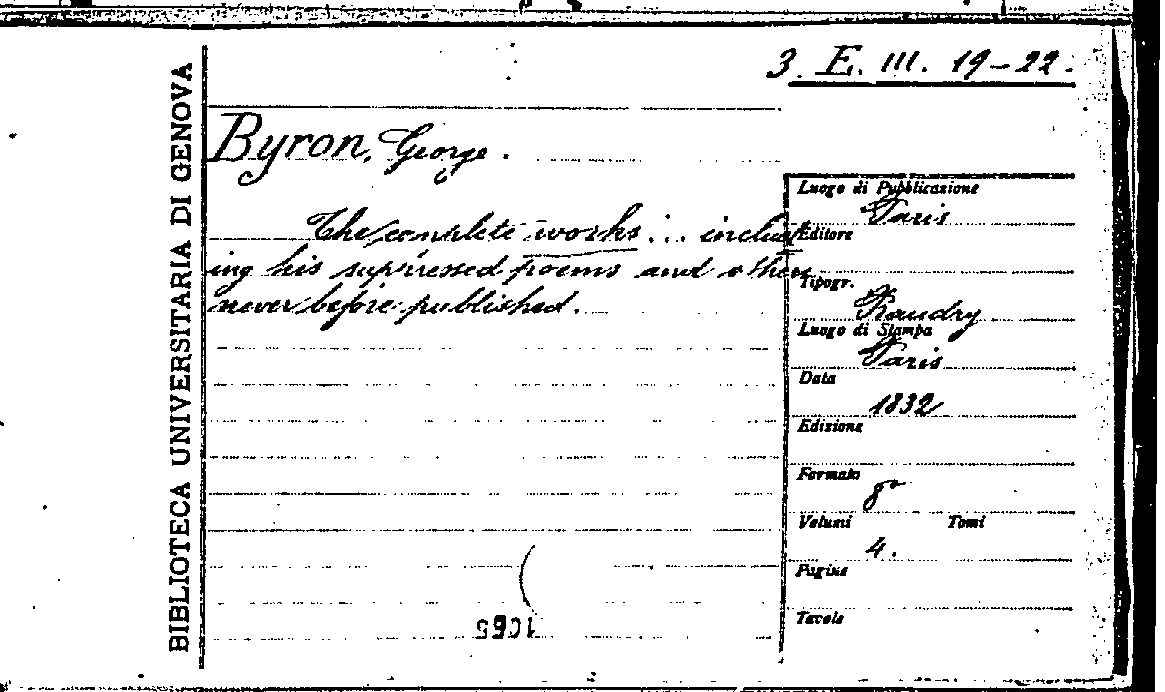 3. E. III. 19-22.
BIBLIOTECA UNIVERSITARIA DI GENOVA
Byron, George.
The complete works... includ
ing his suppressed poems and others
never before published.
Luogo di Pubblicazione
Paris
Editore
Tipogr.
Baudry
Luogo di Stampa
Paris
Data
1832
Edizione
Formato
8°
Volumi Tomi
4.
Pagine
Tavole